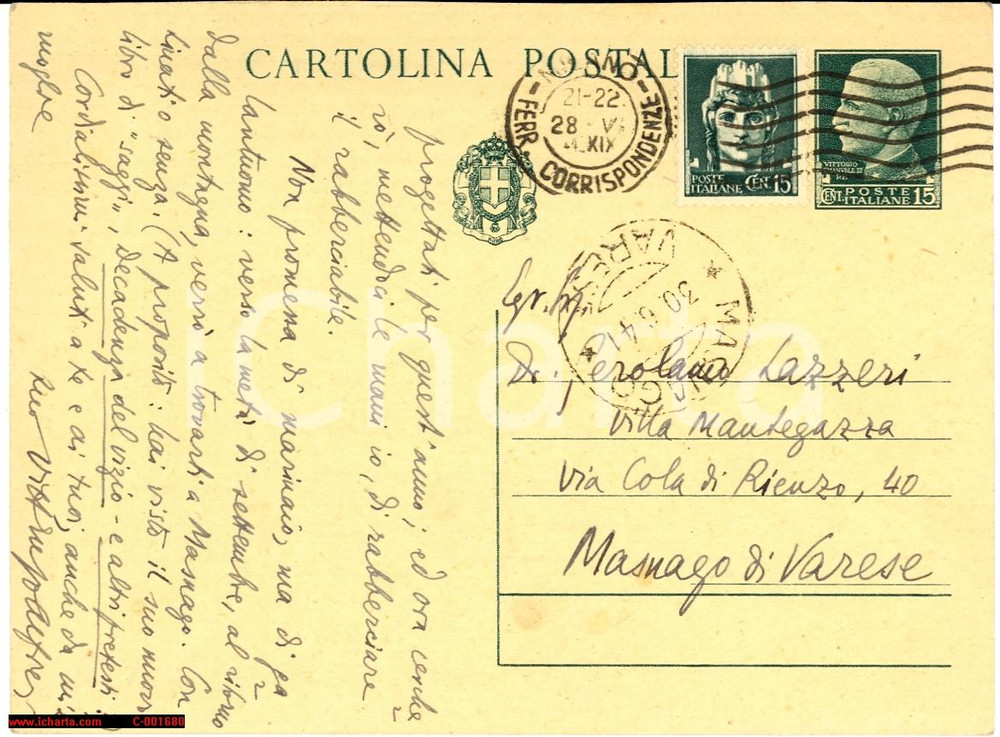 CARTOLINA POSTAL
MILANO
21-22
28 VI
41 XIX
FERR. CORRISPONDENZE
POSTE
ITALIANE CEN. 15
VITTORIO
EMANUELE III
RE
POSTE
CENT. ITALIANE 15
MASNAGO
VARESE
30.6.41
Egr. Sig.
Dr. Gerolamo Lazzeri
Villa Mantegazza
Via Cola di Rienzo, 40
Masnago di Varese
progettati per quest'anno; ed ora cerche
rò, mettendoci le mani io, di rabberciare
il rabberciabile.
Non promessa di marinaio, ma di ga
lantuomo: verso la metà di settembre, al ritorno
dalla montagna, verrò a trovarti a Masnago. Con
Linati o senza. (A proposito: hai visto il suo nuovo
libro di "saggi", Decadenza del vizio - e altri pretesti)
Cordialissimi saluti a te e ai tuoi, anche da mia
moglie
tuo
iCharta
www.icharta.com C-001680